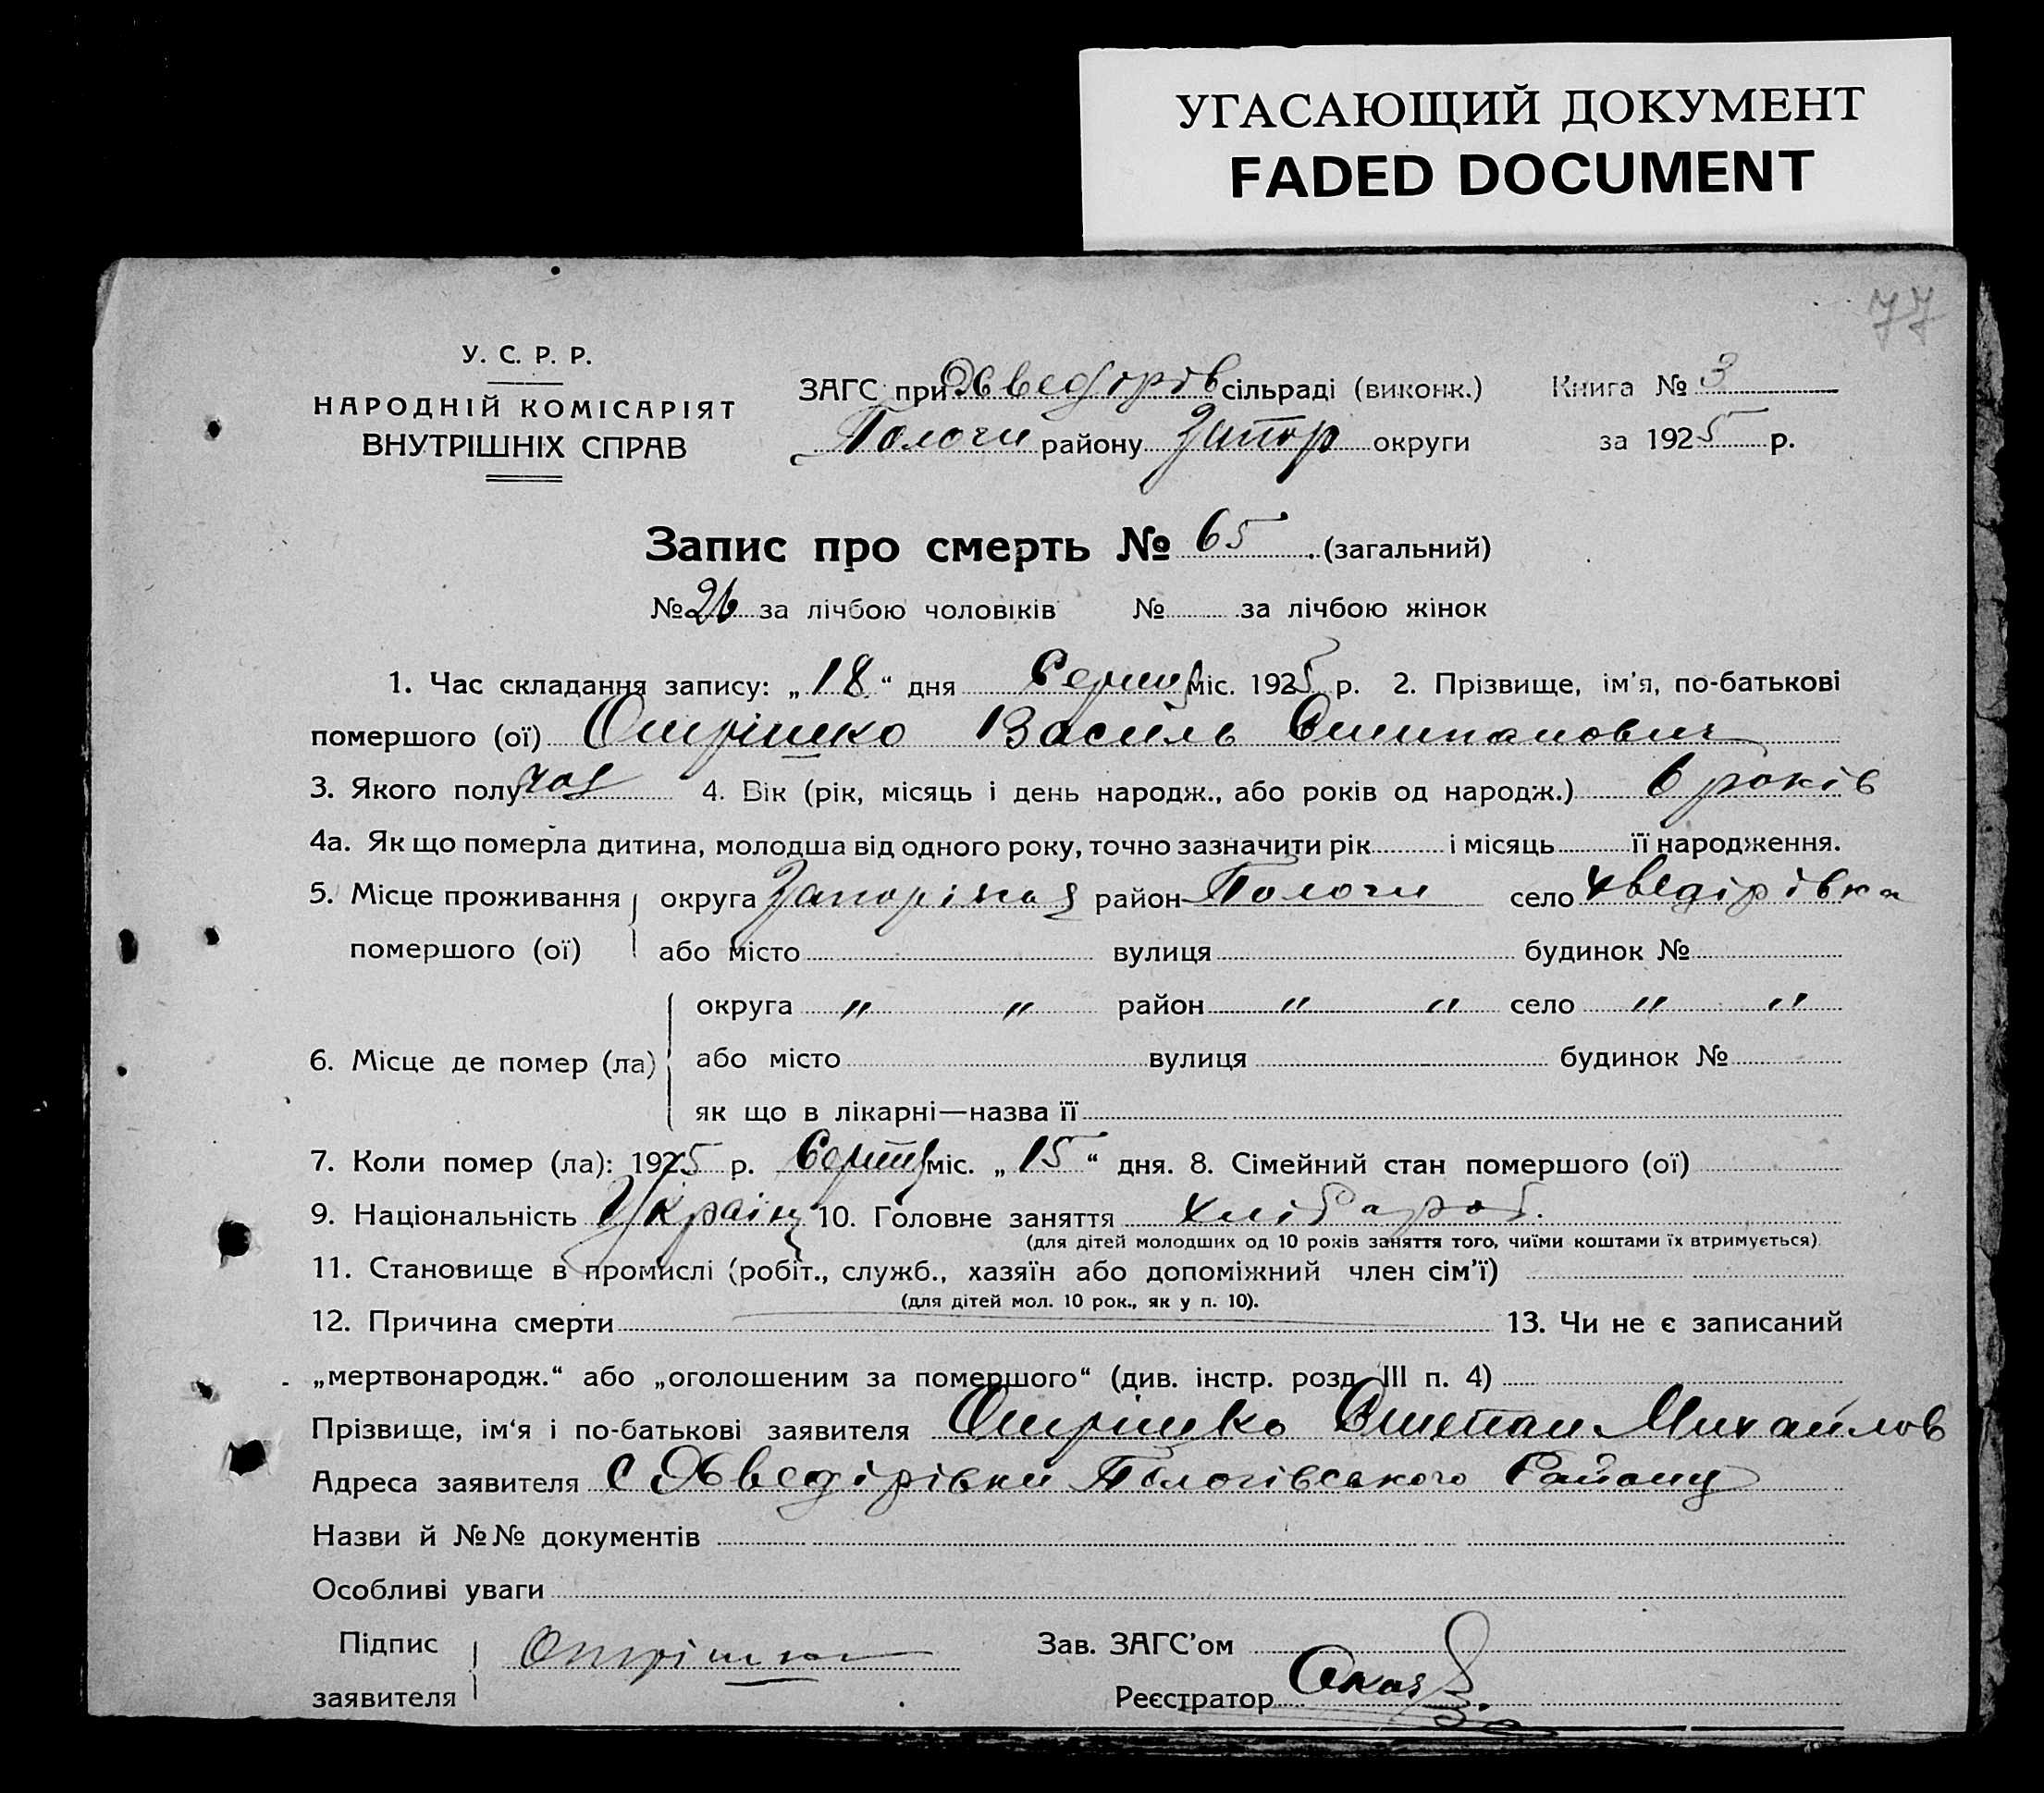 УГАСАЮЩИЙ ДОКУМЕНТ
FADED DOCUMENT
77
У. С. Р. Р.
НАРОДНІЙ КОМІСАРІЯТ
ВНУТРІШНІХ СПРАВ
ЗАГС при Хведорів сільраді (виконк.) Книга № 3
Пологи району Запор округи за 1925 р.
Запис про смерть № 65 (загальний)
№ 26 за лічбою чоловіків № за лічбою жінок
1. Час складання запису: „18“ дня Серпня міс. 1925 р. 2. Прізвище, ім'я, по-батькові
помершого (ої) Отрішко Василь Стипанович
3. Якого полу чол 4. Вік (рік, місяць і день народж., або років од народж.) 6 років
4а. Як що померла дитина, молодша від одного року, точно зазначити рік і місяць її народження.
5. Місце проживання округа район Пологи село Хведірівка
помершого (ої) або місто вулиця будинок №
округа „ „ район „ „ село „ „
6. Місце де помер (ла) або місто вулиця будинок №
як що в лікарні—назва її
7. Коли помер (ла): 1925 р. Серпня міс. „15“ дня. 8. Сімейний стан помершого (ої)
9. Національність Україн 10. Головне заняття хлібароб.
(для дітей молодших од 10 років заняття того, чиїми коштами їх втримується)
11. Становище в промислі (робіт., служб., хазяїн або допоміжний член сім'ї)
(для дітей мол. 10 рок., як у п. 10).
12. Причина смерти 13. Чи не є записаний
„мертвонародж.“ або „оголошеним за помершого“ (див. інстр. розд. III п. 4)
Прізвище, ім'я і по-батькові заявителя Отрішко Стипан Михайлов
Адреса заявителя С Хведірівки Пологівського Району
Назви й №№ документів
Особливі уваги
Підпис Отрішко Зав. ЗАГС'ом
заявителя Реєстратор